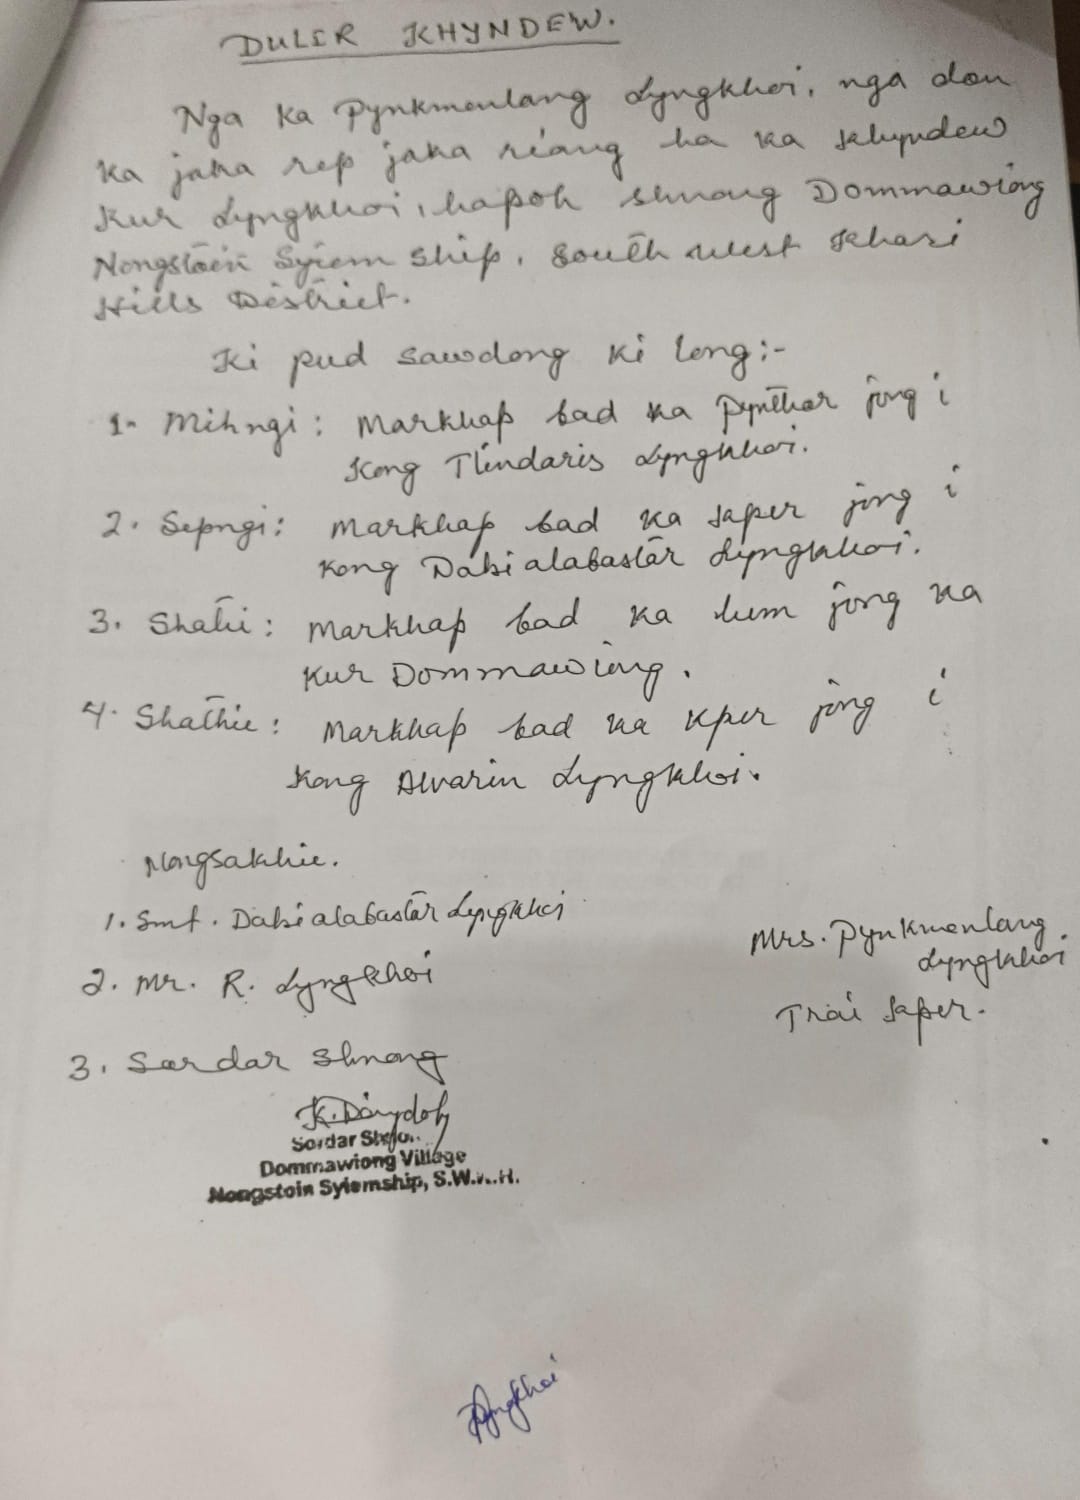 DULIR KHYNDEW.
Nga ka Pynkmenlang Lyngkhoi, nga don
ka jaka rep jaka riang ha ka khyndew
kur Lyngkhoi, hapoh shnong Dommawiong
Nongstoin Syiem ship, South West Khasi
Hills District.
Ki pud sawdong ki long:-
1. Mihngi: Markhap bad ka Pynthor jong i
Kong Tlindaris Lyngkhoi.
2. Sepngi: Markhap bad ka saper jong i
Kong Dabialabastar Lyngkhoi.
3. Shati: Markhap bad ka lum jong ka
Kur Dommawiong.
4. Shathie: Markhap bad ka kper jong i
Kong Alvarin Lyngkhoi.
Nongsakhie.
1. Smt. Dabialabastar Lyngkhoi
2. Mr. R. Lyngkhoi
Mrs. Pynkmenlang
Lyngkhoi
Trai saper.
3. Sordar Shnong
Sordar
Dommawiong Village
Nongstoin Syiemship,
Lyngkhoi